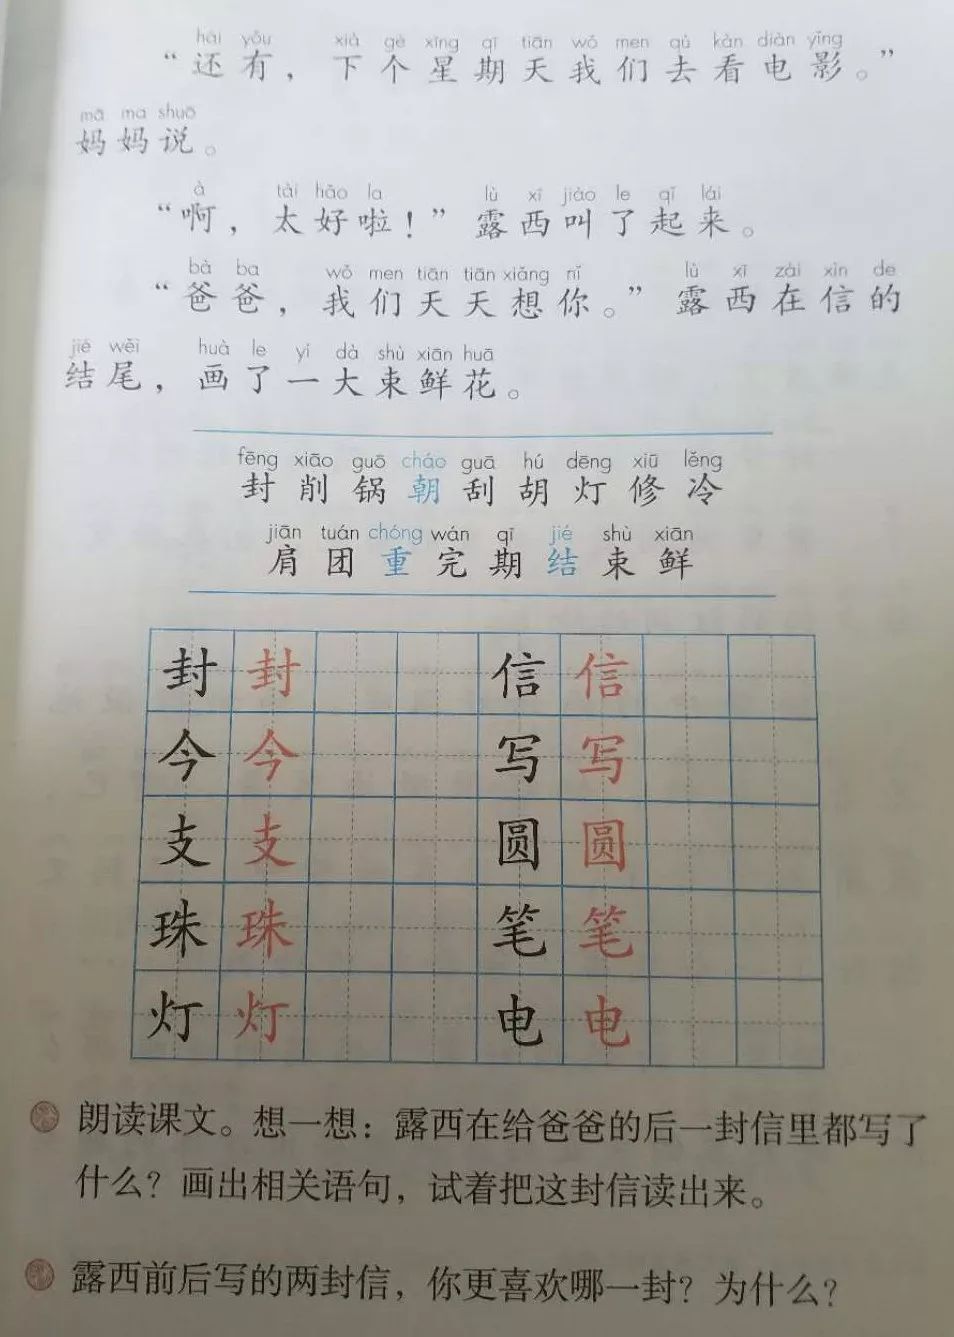 hái yǒu xià gè xīng qī tiān wǒ men qù kàn diàn yǐng
“还有，下个星期天我们去看电影。”
mā ma shuō
妈妈说。
à tài hǎo la lù xī jiào le qǐ lái
“啊，太好啦！”露西叫了起来。
bà ba wǒ men tiān tiān xiǎng nǐ lù xī zài xìn de
“爸爸，我们天天想你。”露西在信的
jié wěi huà le yí dà shù xiān huā
结尾，画了一大束鲜花。
fēng xiāo guō cháo guā hú dēng xiū lěng
封 削 锅 朝 刮 胡 灯 修 冷
jiān tuán chóng wán qī jié shù xiān
肩 团 重 完 期 结 束 鲜
封 封 信 信
今 今 写 写
支 支 圆 圆
珠 珠 笔 笔
灯 灯 电 电
朗读课文。想一想：露西在给爸爸的后一封信里都写了
什么？画出相关语句，试着把这封信读出来。
露西前后写的两封信，你更喜欢哪一封？为什么？